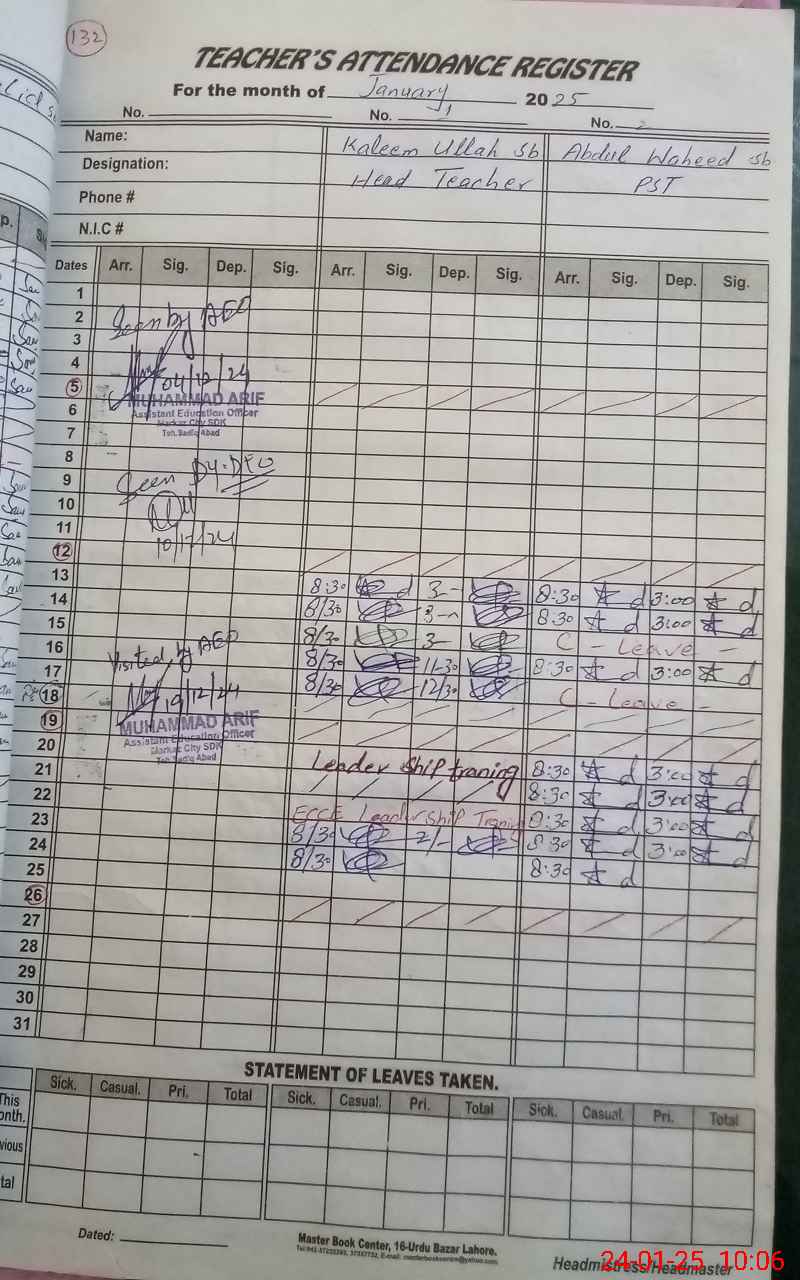 132
TEACHER'S ATTENDANCE REGISTER
For the month of January 2025
No. No. 1 No. 2
Name: Kaleem Ullah sb Abdul Waheed sb
Designation: Head Teacher PST
Phone #
N.I.C #
Dates Arr. Sig. Dep. Sig. Arr. Sig. Dep. Sig. Arr. Sig. Dep. Sig.
1
2
Seen by AEO
3
4
04/12/24
5
MUHAMMAD ARIF
Assistant Education Officer
Markaz City SDK
Teh. Sadiq Abad
6
7
8
9
Seen Dy. DEO
10
11
10/12/24
12
13
8:30 3- 8:30 3:00
14
8/30 3- 8:30 3:00
15
8/30 3- C - Leave -
16
Visited by AEO
8/30 11-30 8:30 3:00
17
8/30 12/30 C - Leave -
18
19/12/24
19
MUHAMMAD ARIF
Assistant Education Officer
Markaz City SDK
Teh. Sadiq Abad
20
21
Leader Ship traning 8:30 3:00
22
8:30 3:00
23
ECCE Leadership Traning 8:30 3:00
24
8/30 2/- 8:30 3:00
25
8/30 8:30
26
27
28
29
30
31
STATEMENT OF LEAVES TAKEN.
Sick. Casual. Pri. Total Sick. Casual. Pri. Total Sick. Casual. Pri. Total
This
onth.
vious
tal
Dated:
Master Book Center, 16-Urdu Bazar Lahore.
Headmistress/Headmaster
24-01-25 10:06